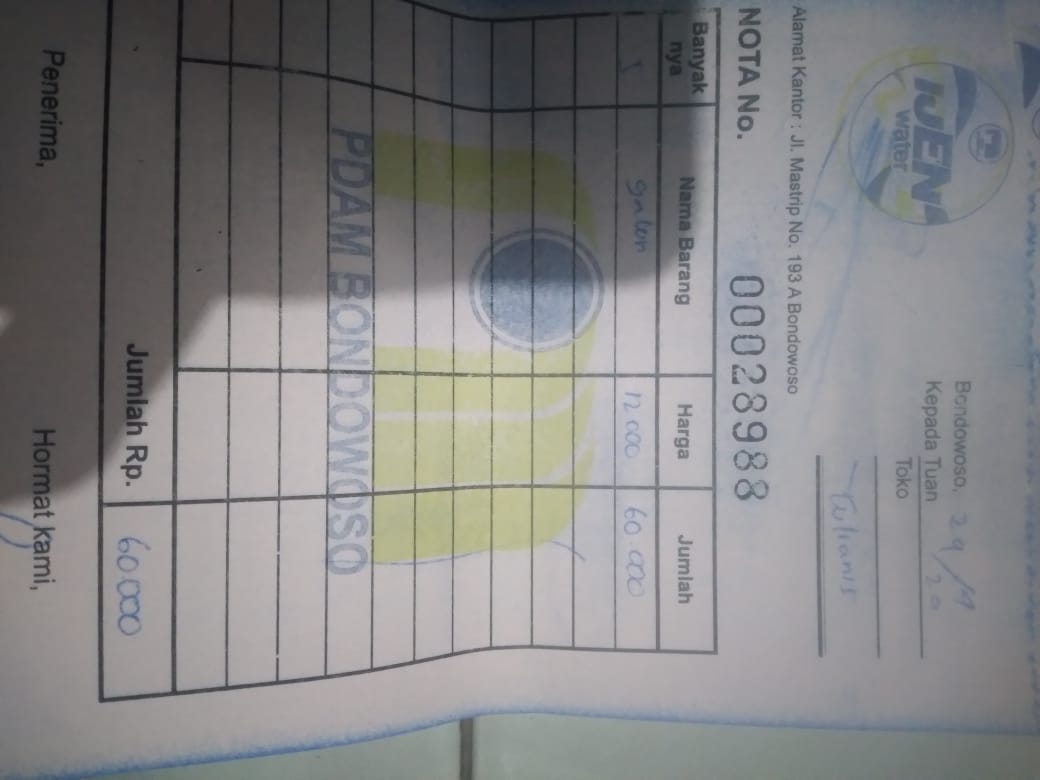 IJEN
water
Bondowoso, 29/
20
Kepada Tuan
Toko
Alamat Kantor : Jl. Mastrip No. 193 A Bondowoso
NOTA No. 00028988
Banyak nya Nama Barang Harga Jumlah
galon 12 000 60.000
PDAM BONDOWOSO
Jumlah Rp. 60.000
Penerima, Hormat kami,